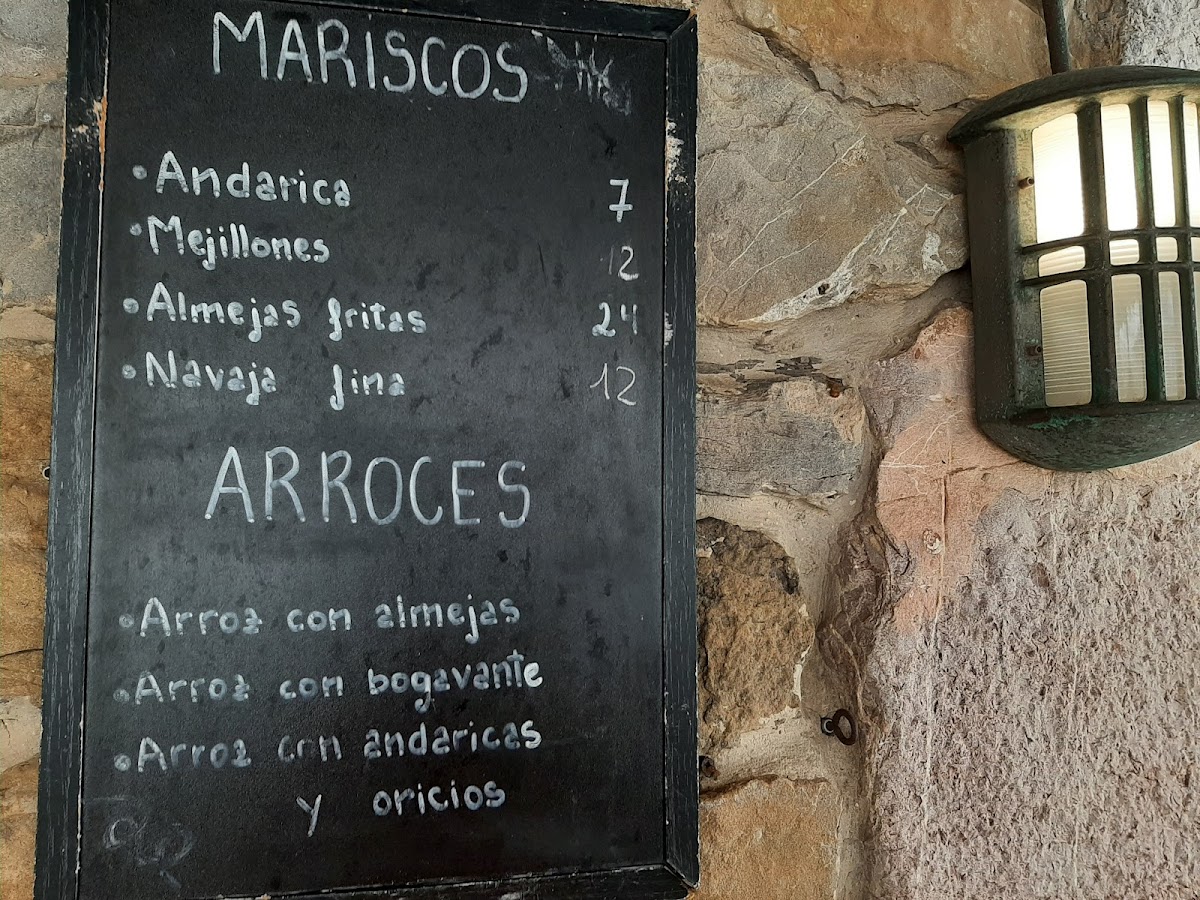 MARISCOS
• Andarica 7
• Mejillones 12
• Almejas fritas 24
• Navaja fina 12
ARROCES
• Arroz con almejas
• Arroz con bogavante
• Arroz con andaricas
y oricios